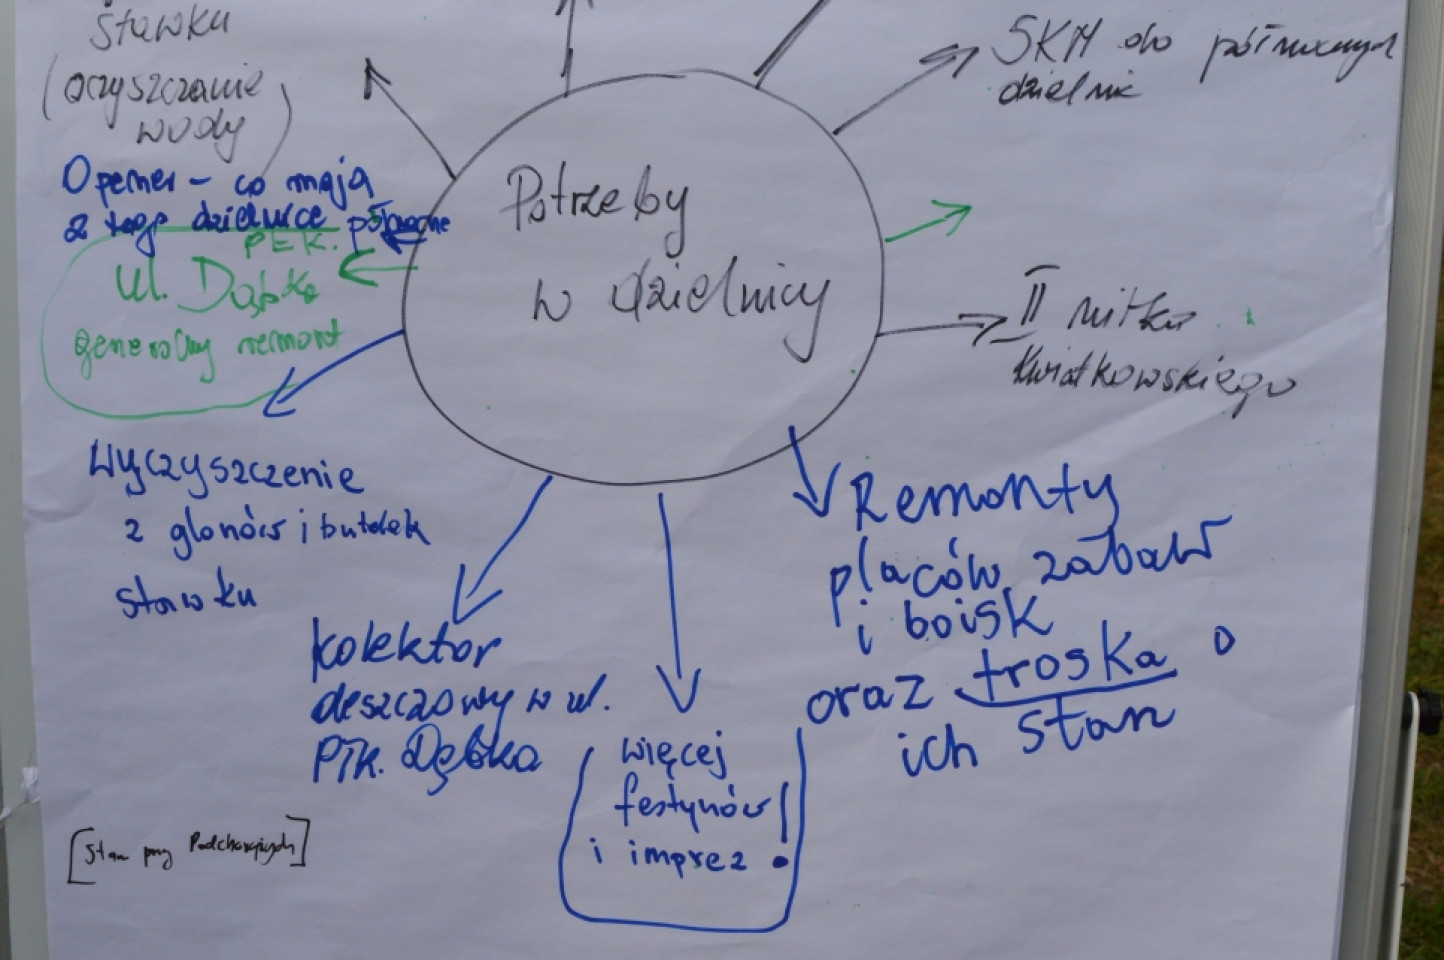 Stawku
(oczyszczanie
wody)
Opener – co mają
z tego dzielnice północne
płk.
ul. Dąbka
generalny remont
Wyczyszczenie
z glonów i butelek
stawku
kolektor
deszczowy w ul.
Płk. Dąbka
[Staw przy Podchorążych]
Potrzeby
w dzielnicy
więcej
festynów
i imprez !
SKM do północnych
dzielnic
II nitka
Kwiatkowskiego
Remonty
placów zabaw
i boisk
oraz troska o
ich stan